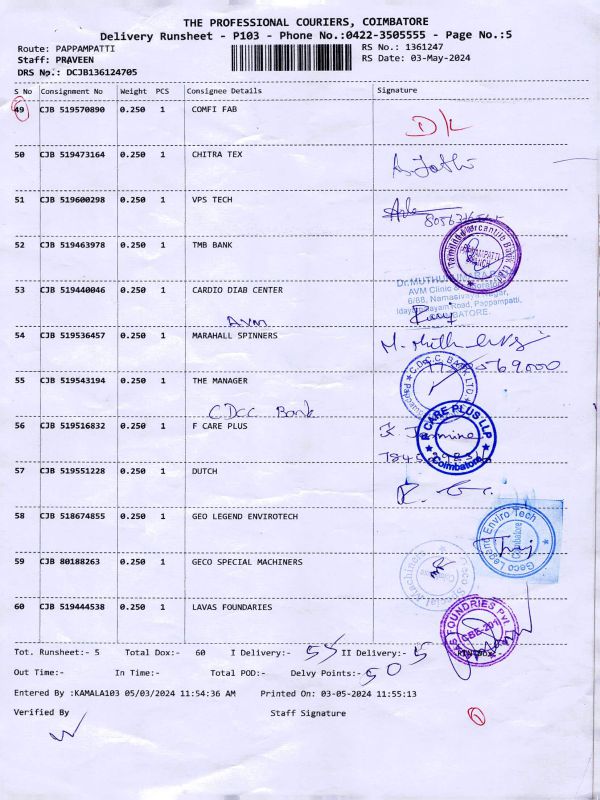 THE PROFESSIONAL COURIERS, COIMBATORE
Delivery Runsheet - P103 - Phone No.:0422-3505555 - Page No.:5
Route: PAPPAMPATTI RS No.: 1361247
Staff: PRAVEEN RS Date: 03-May-2024
DRS No.: DCJB136124705
S No Consignment No Weight PCS Consignee Details Signature
49 CJB 519570890 0.250 1 COMFI FAB
D/L
50 CJB 519473164 0.250 1 CHITRA TEX
51 CJB 519600298 0.250 1 VPS TECH
52 CJB 519463978 0.250 1 TMB BANK
Tamilnad Mercantile Bank Ltd
PAPPAMPATTI BRANCH
53 CJB 519440046 0.250 1 CARDIO DIAB CENTER
AVM Clinic
6/88, Namasivaya Nagar,
Road, Pappampatti,
AVM
54 CJB 519536457 0.250 1 MARAHALL SPINNERS
55 CJB 519543194 0.250 1 THE MANAGER
C.D.C.C. BANK LTD
CDCC Bank
56 CJB 519516832 0.250 1 F CARE PLUS
F CARE PLUS LLP
Coimbatore
57 CJB 519551228 0.250 1 DUTCH
58 CJB 518674855 0.250 1 GEO LEGEND ENVIROTECH
Geco Legend Enviro Tech
Coimbatore
59 CJB 80188263 0.250 1 GECO SPECIAL MACHINERS
60 CJB 519444538 0.250 1 LAVAS FOUNDARIES
FOUNDRIES Pvt
Tot. Runsheet:- 5 Total Dox:- 60 I Delivery:- 55 II Delivery:- 5
Out Time:- In Time:- Total POD:- Delvy Points:- 505
Entered By :KAMALA103 05/03/2024 11:54:36 AM Printed On: 03-05-2024 11:55:13
Verified By Staff Signature